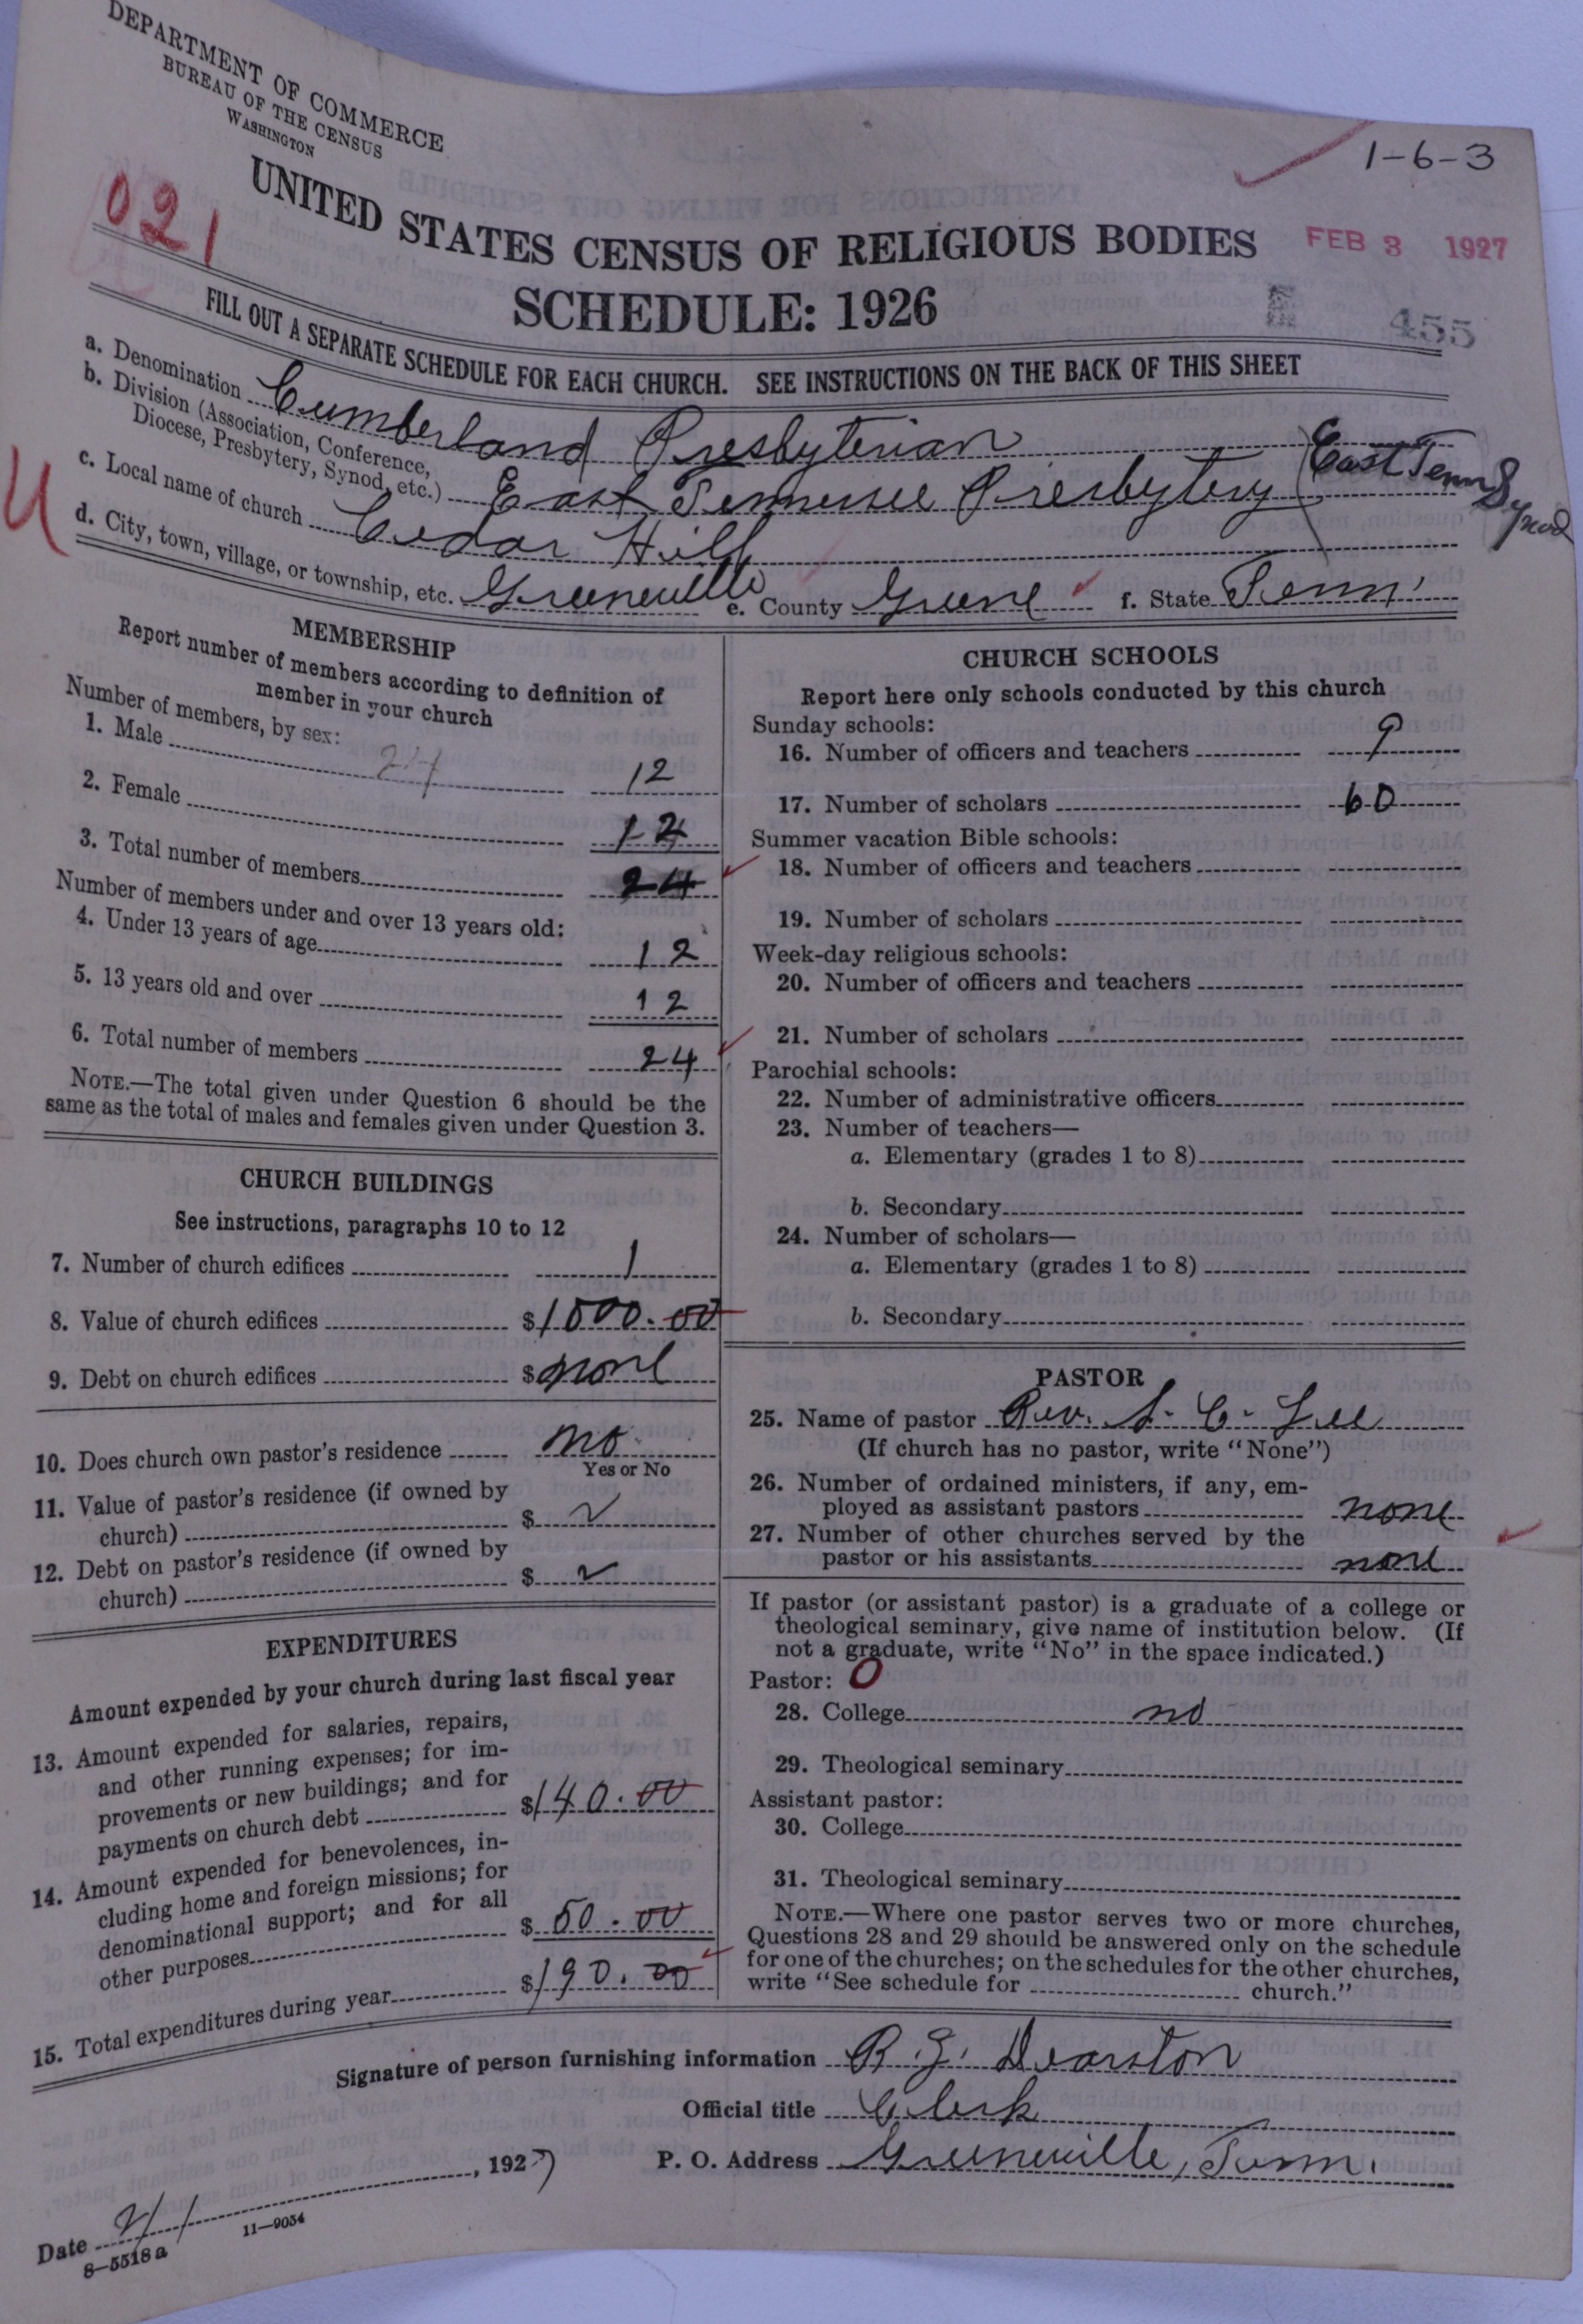 DEPARTMENT OF COMMERCE
BUREAU OF THE CENSUS
WASHINGTON
1-6-3
021
UNITED STATES CENSUS OF RELIGIOUS BODIES
FEB 3 1927
SCHEDULE: 1926
455
FILL OUT A SEPARATE SCHEDULE FOR EACH CHURCH. SEE INSTRUCTIONS ON THE BACK OF THIS SHEET
a. Denomination Cumberland Presbyterian
b. Division (Association, Conference, Diocese, Presbytery, Synod, etc.) East Tennessee Presbytery (East Tenn Synod
c. Local name of church Cedar Hill
d. City, town, village, or township, etc. Greeneville e. County Greene f. State Tenn.
MEMBERSHIP
Report number of members according to definition of
member in your church
Number of members, by sex:
1. Male 12
2. Female 12
3. Total number of members 24
Number of members under and over 13 years old:
4. Under 13 years of age 12
5. 13 years old and over 12
6. Total number of members 24
NOTE.—The total given under Question 6 should be the
same as the total of males and females given under Question 3.
CHURCH BUILDINGS
See instructions, paragraphs 10 to 12
7. Number of church edifices 1
8. Value of church edifices $1000.00
9. Debt on church edifices $none
10. Does church own pastor's residence no
Yes or No
11. Value of pastor's residence (if owned by
church) $
12. Debt on pastor's residence (if owned by
church) $
EXPENDITURES
Amount expended by your church during last fiscal year
13. Amount expended for salaries, repairs,
and other running expenses; for im-
provements or new buildings; and for
payments on church debt $140.00
14. Amount expended for benevolences, in-
cluding home and foreign missions; for
denominational support; and for all
other purposes $50.00
15. Total expenditures during year $190.00
CHURCH SCHOOLS
Report here only schools conducted by this church
Sunday schools:
16. Number of officers and teachers 9
17. Number of scholars 60
Summer vacation Bible schools:
18. Number of officers and teachers
19. Number of scholars
Week-day religious schools:
20. Number of officers and teachers
21. Number of scholars
Parochial schools:
22. Number of administrative officers
23. Number of teachers—
a. Elementary (grades 1 to 8)
b. Secondary
24. Number of scholars—
a. Elementary (grades 1 to 8)
b. Secondary
PASTOR
25. Name of pastor Rev. S. C. Lee
(If church has no pastor, write "None")
26. Number of ordained ministers, if any, em-
ployed as assistant pastors none
27. Number of other churches served by the
pastor or his assistants none
If pastor (or assistant pastor) is a graduate of a college or
theological seminary, give name of institution below. (If
not a graduate, write "No" in the space indicated.)
Pastor: 0
28. College no
29. Theological seminary
Assistant pastor:
30. College
31. Theological seminary
NOTE.—Where one pastor serves two or more churches,
Questions 28 and 29 should be answered only on the schedule
for one of the churches; on the schedules for the other churches,
write "See schedule for church."
Signature of person furnishing information R. G. Dearston
Official title Clerk
Date 2/1, 1927 P. O. Address Greeneville, Tenn.
8—5518a 11—9054